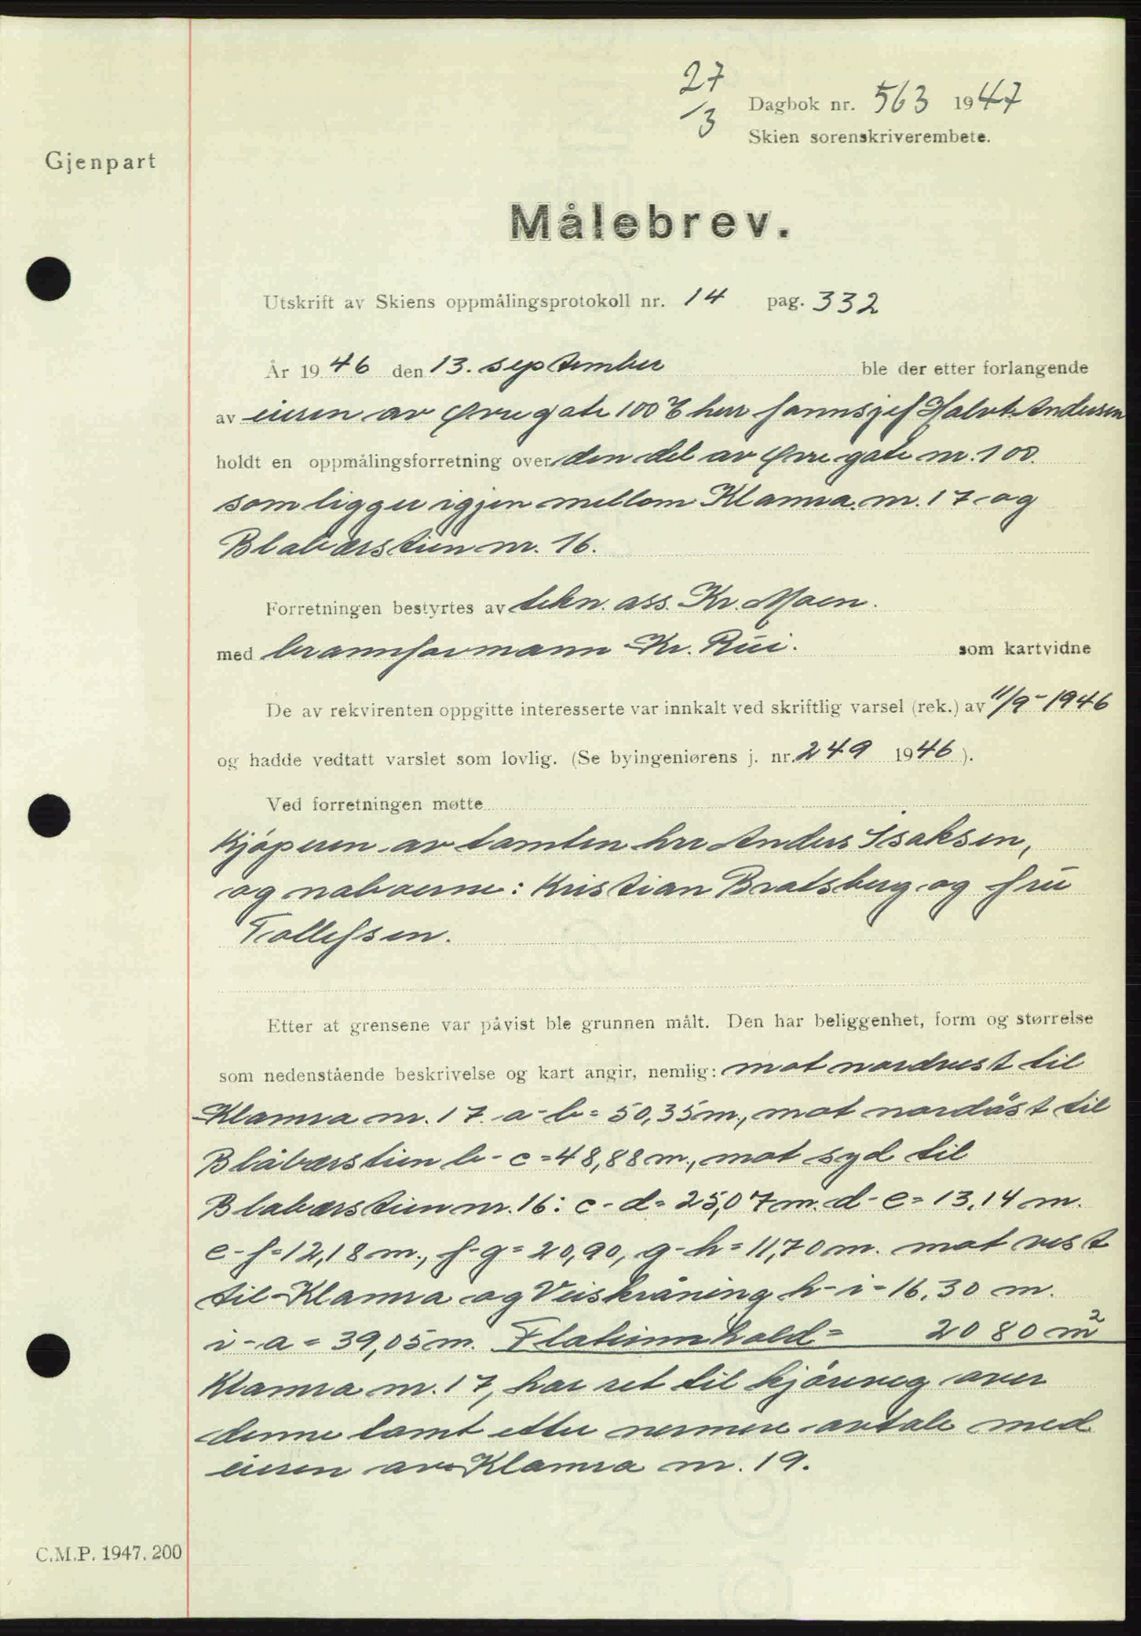 27/3
Dagbok nr. 563 1947
Skien sorenskriverembete.
Gjenpart
Målebrev.
Utskrift av Skiens oppmålingsprotokoll nr. 14 pag. 332
År 1946 den 13. september ble der etter forlangende
av eieren av Øvregate 100 herr Halvk Andersen
holdt en oppmålingsforretning over den del av Øvregate nr. 100.
som ligger igjen mellom Klamra nr. 17 og
Blabærstien nr. 16.
Forretningen bestyrtes av tekn. ass. Kr. Moen.
med brannformann Kr. Rui. som kartvidne
De av rekvirenten oppgitte interesserte var innkalt ved skriftlig varsel (rek.) av 11/9-1946
og hadde vedtatt varslet som lovlig. (Se byingeniørens j. nr. 249 1946).
Ved forretningen møtte
Kjøperen av tomten hrr Anders Isaksen,
og naboerne: Kristian Bratsberg og fru
Tollefsen.
Etter at grensene var påvist ble grunnen målt. Den har beliggenhet, form og størrelse
som nedenstående beskrivelse og kart angir, nemlig: mot nordvest til
Klamra nr. 17. a-b = 50,35m., mot nordöst til
Blåbærstien b-c = 48,88m., mot syd til
Blabærstien nr. 16: c-d = 25,07m. d-e = 13,14 m.
e-f = 12,18m., f-g = 20,90, g-h = 11,70m. mot vest
til Klamra og Veiskråning h-i = 16,30 m.
i-a = 39,05m. Flateinnhold = 2080 m²
Klamra nr. 17, har ret til kjöreveg over
denne tomt etter nermere avtale med
eieren av Klamra nr. 19.
C.M.P. 1947. 200